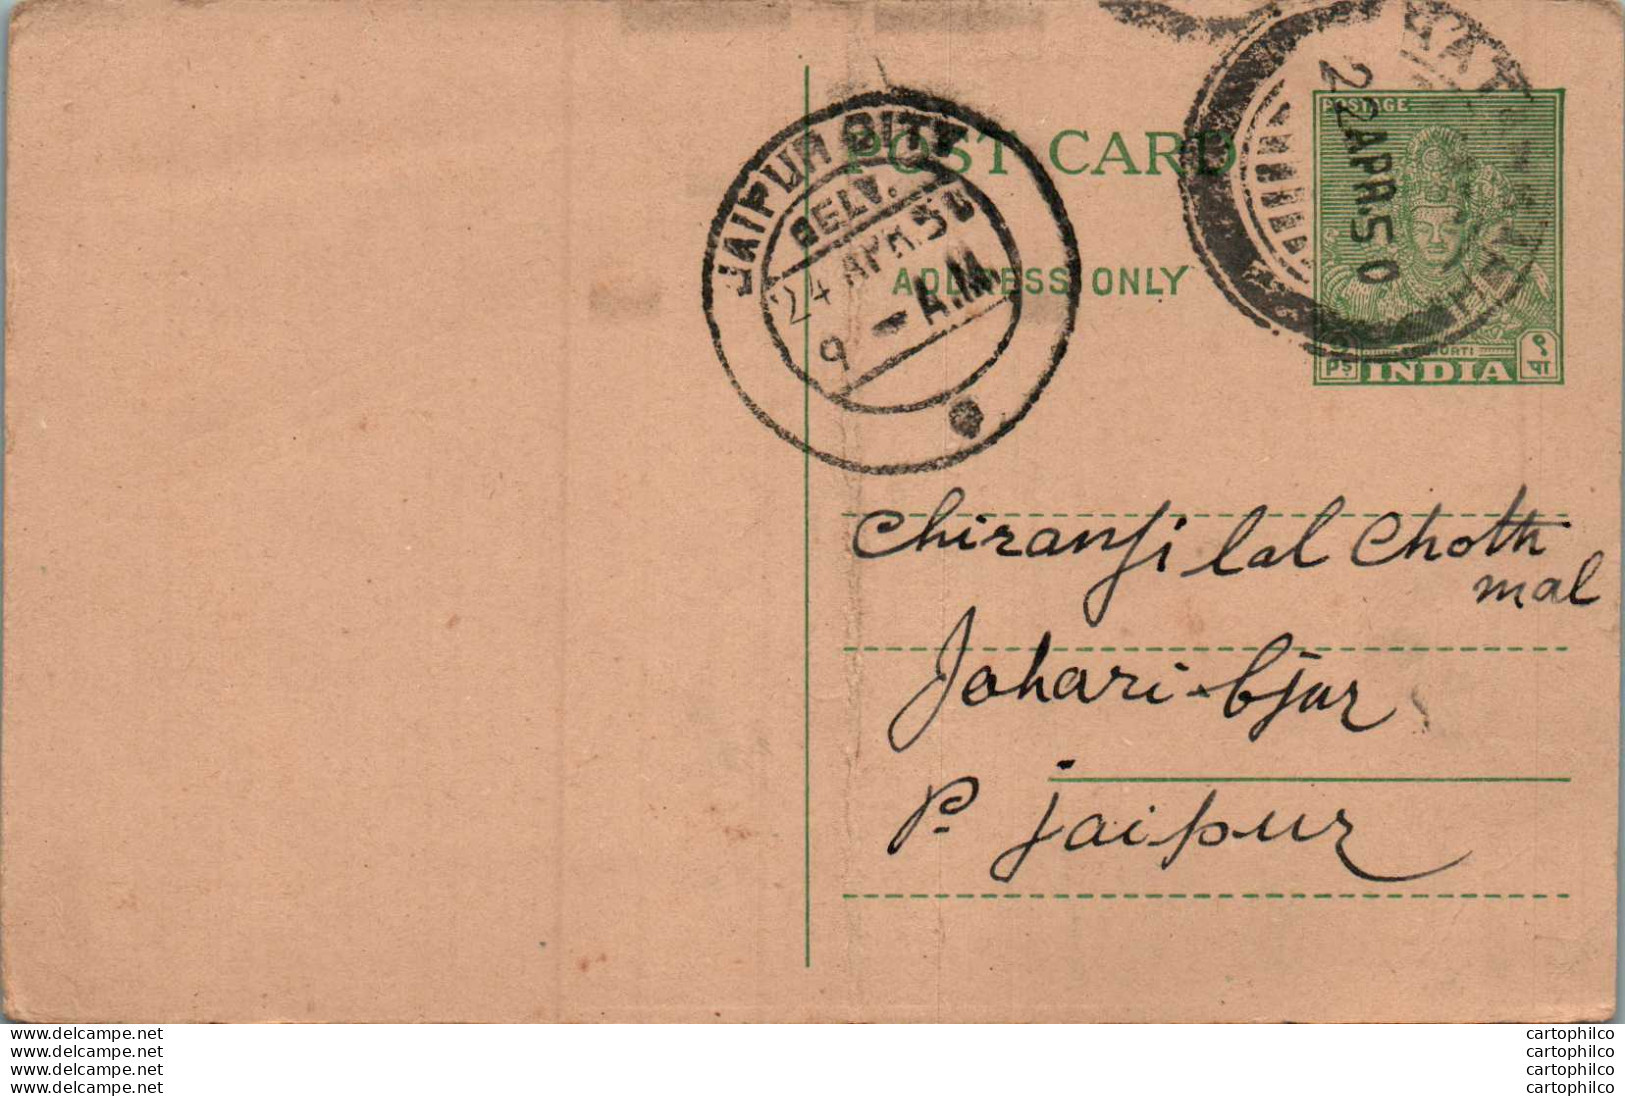 POST CARD
ADDRESS ONLY
JAIPUR CITY
DELV.
24 APR.50
9 - A.M.
22 APR.50
POSTAGE
9 Ps
INDIA
९ पा
Chiranji lal Choth
mal
Johari-bjar
P. Jaipur
www.delcampe.net
www.delcampe.net
www.delcampe.net
www.delcampe.net
cartophilco
cartophilco
cartophilco
cartophilco